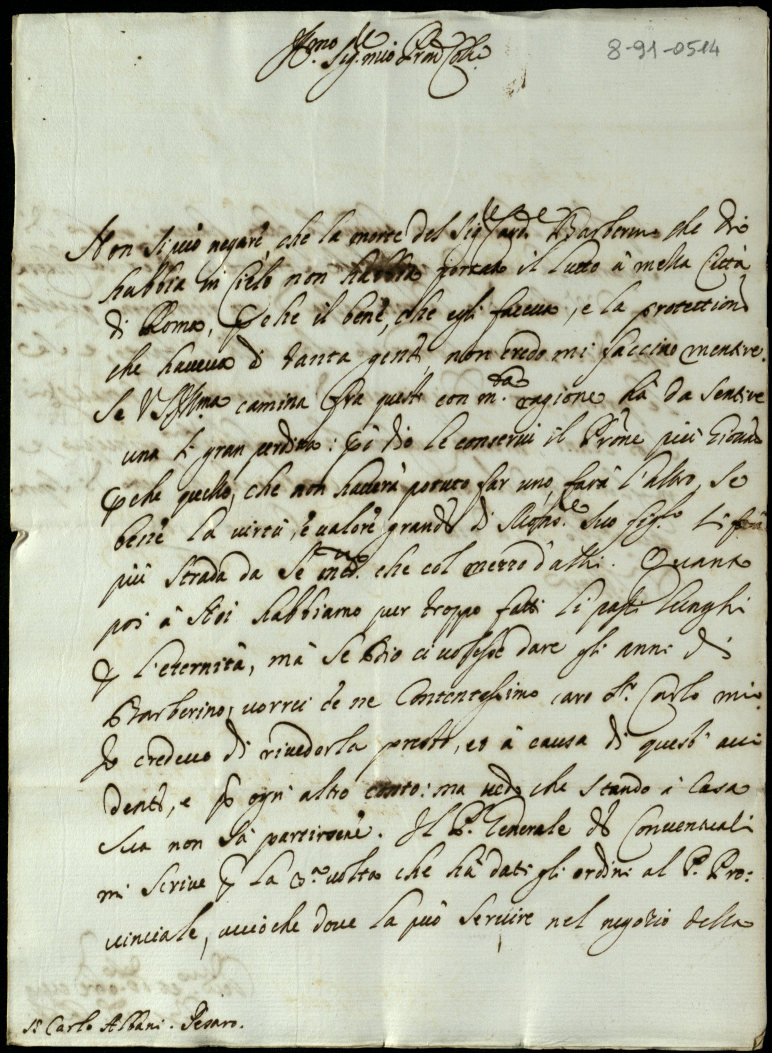 Ill.mo Sig. mio Pron Coll.
8-91-0514
Non si può negare, che la morte del Sig. Card.le Barberino che Dio
habbia in Cielo non habbia portato il lutto à mezza Città
di Roma, perche il bene, che egli faceva, e la protettione
che haveva di tanta gente, non credo mi faccino mentire.
Se V.S. Ill.ma camina fra questi con m.ta ragione hà da sentire
una sì gran perdita: Dio le conservi il Prone più giovane
perche quello, che non haverà potuto far uno, farà l'altro, se
bene la virtù, e valore grande di suo fig.lo li
più strada da se med.mo che col mezzo d'altri. Quanto
poi à Noi habbiamo pur troppo fatti li passi lunghi
per l'eternità, mà se Dio ci volesse dare gli anni di
Barberino, vorrei ne Contentissimo caro Sr. Carlo mio.
Io credevo di rivederla presto, et à causa di questi acci
denti, e per ogni altro conto: ma vedo che stando à Casa
sua non sà partirsene. Il P. Generale de Conventuali
mi scrive per la 3.a volta che hà dati gli ordini al P. Pro:
vinciale, acciòche dove la può servire nel negozio della
Sr. Carlo Albani. Pesaro.